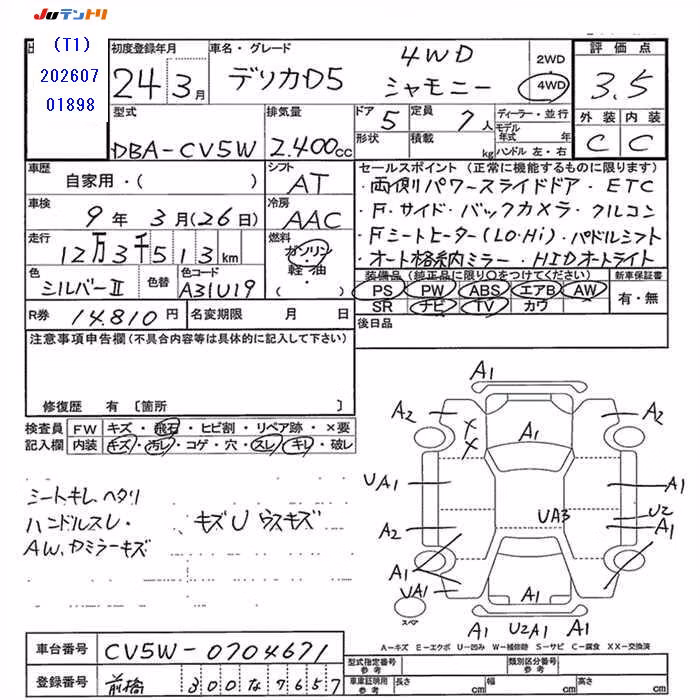 Juテントリ
(T1)
202607
01898
初度登録年月
24年3月
車名・グレード
4WD
デリカD5 シャモニー
2WD
4WD
評価点
3.5
外装 内装
C C
型式
DBA-CV5W
排気量
2.400cc
ドア 5
定員 7人
形状
積載 kg
ディーラー・並行
モデル年式 年
ハンドル 左・右
車歴
自家用・( )
シフト
AT
車検
9年3月(26日)
冷房
AAC
走行
12万3千513km
燃料
ガソリン・軽油・( )
色
シルバーⅡ
色替
色コード
A31U19
R券 14.810円
名変期限 月 日
セールスポイント(正常に機能するものに限ります)
・両側パワースライドドア・ETC
・F・サイド・バックカメラ・クルコン
・Fシートヒーター(LO・Hi)・パドルシフト
・オート格納ミラー・HIDオートライト
装備品(純正品に限り○をつけてください)
新車保証書
PS PW ABS エアB AW
SR ナビ TV カワ
有・無
後日品
注意事項申告欄(不具合内容等は具体的に記入して下さい)
修復歴 有 〔箇所 〕
検査員記入欄
FW キズ・飛石・ヒビ割・リペア跡・×要
内装 キズ・汚レ・コゲ・穴・スレ・キレ・破レ
シートキレ、ヘタリ
ハンドルスレ・ キズU ウスキズ
AW、カミラーキズ
A1
A2 A2
A1
UA1 A1
U2
A2 UA3
A1 A1
UA1 A1
スペア
A1 U2A1 A1
A-キズ E-エクボ U-凹み W-補修跡 S-サビ C-腐食 XX-交換済
車台番号
CV5W-0704671
登録番号
前橋 300な7657
型式指定番号
参考
類別区分番号
参考
車庫証明用
参考
長さ cm 幅 cm 高さ cm